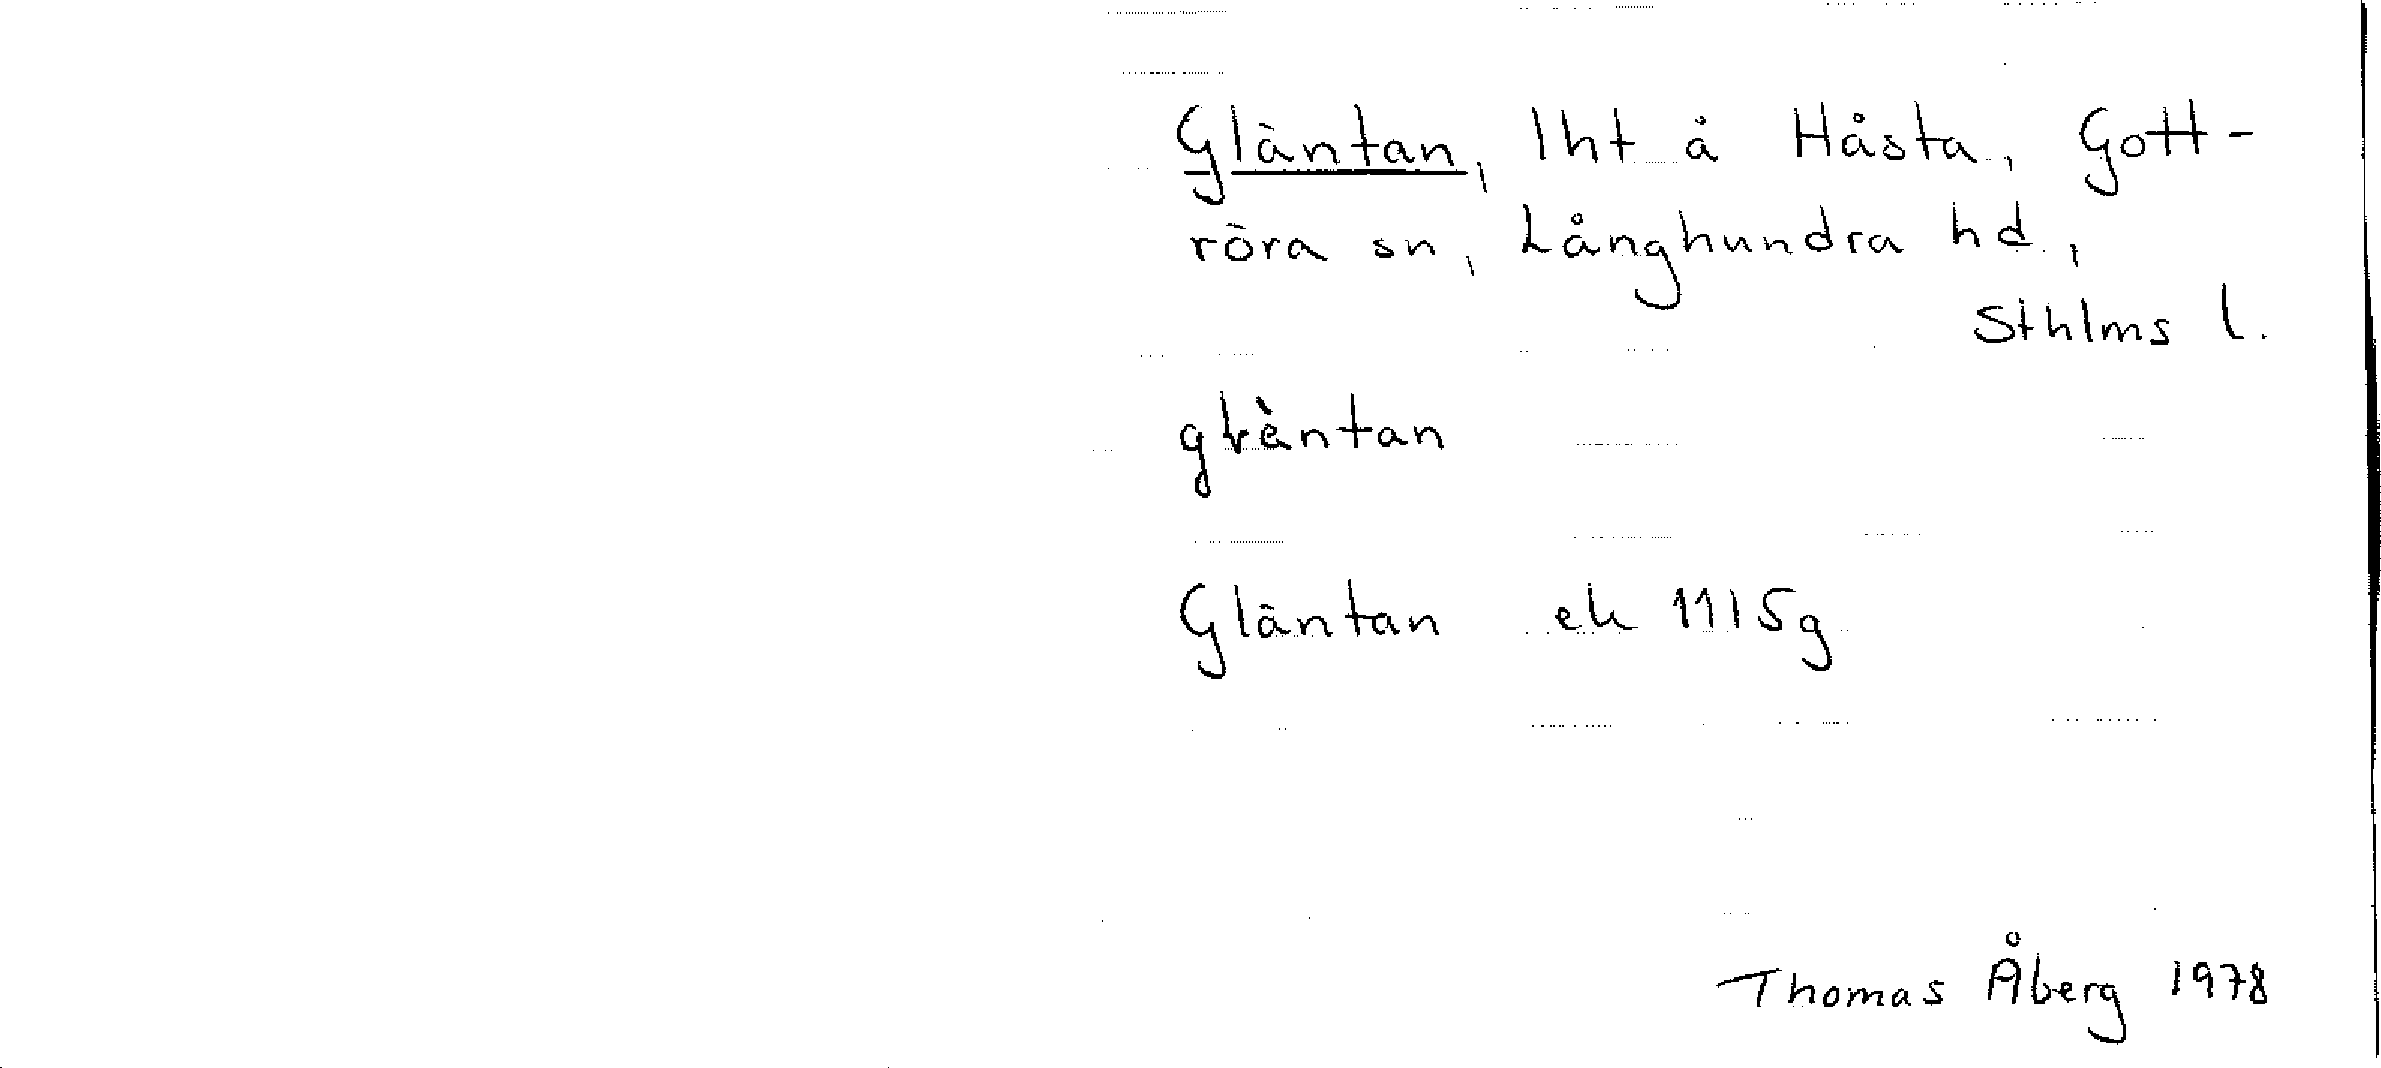 Gläntan, lht å Håsta, Gott-
röra sn, Långhundra hd.,
Sthlms l.
glèntan
Gläntan ek 11I5g
Thomas Åberg 1978